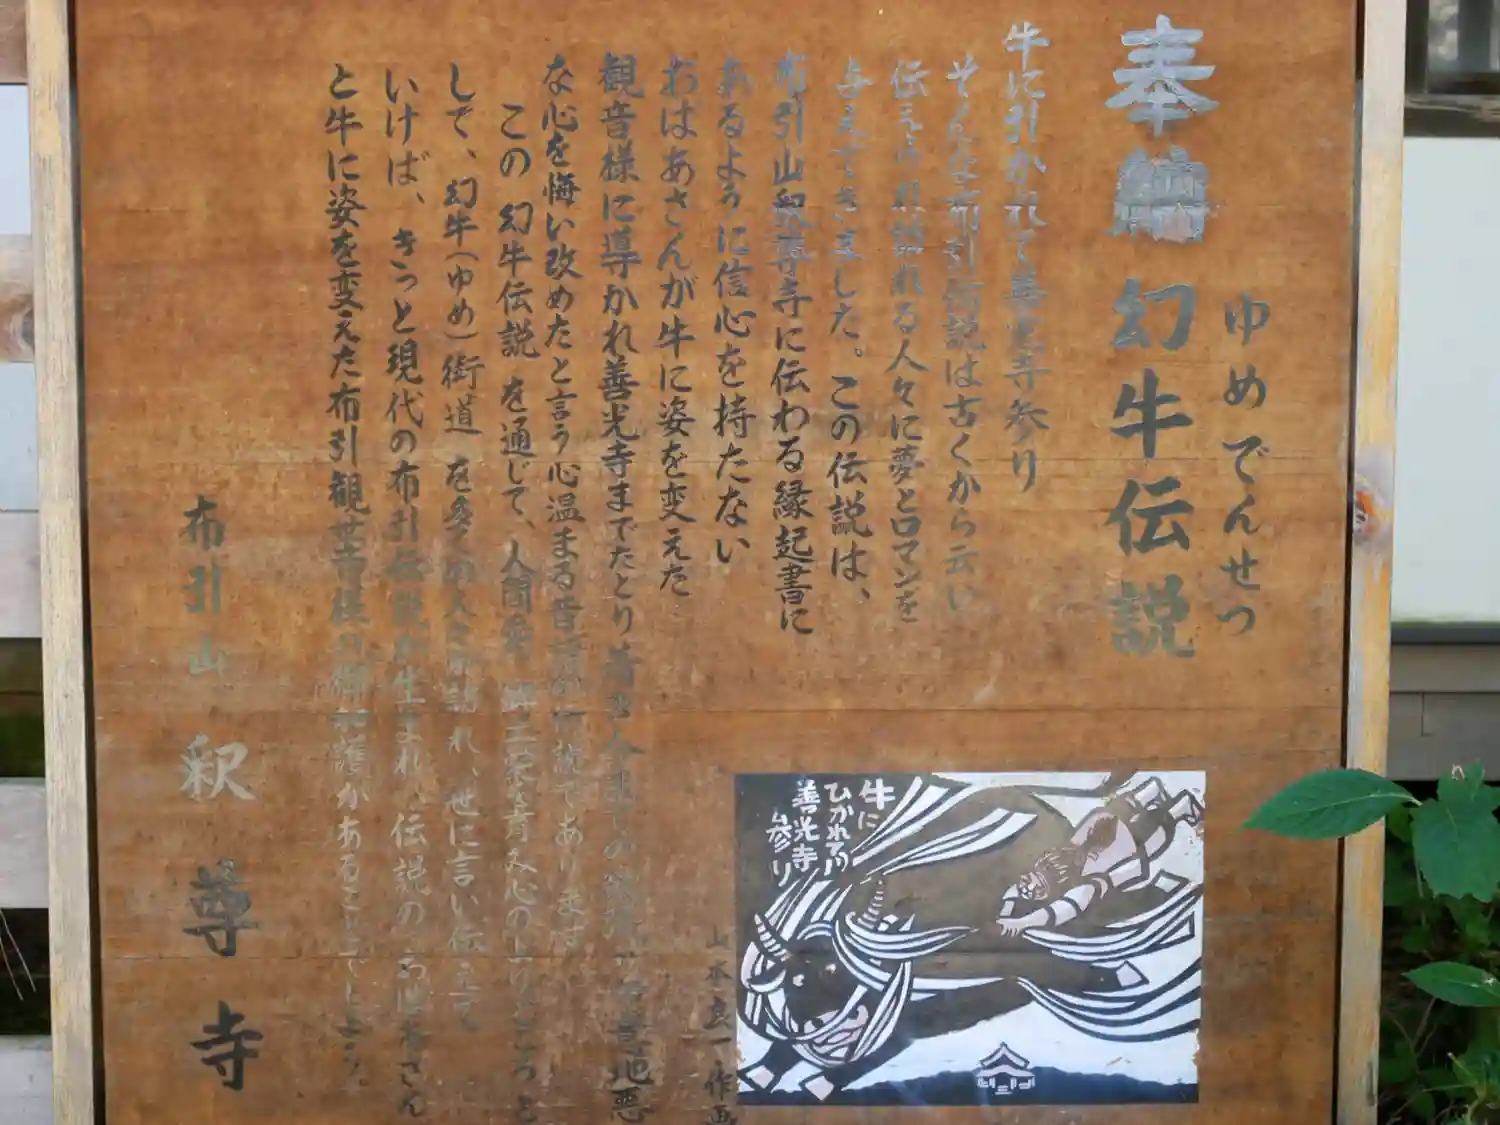 ゆめでんせつ
奉 幻牛伝説
牛に引かれて善光寺参り
そんな布引伝説は古くから云い
伝えられ訪れる人々に夢とロマンを
与えてきました。この伝説は、
布引山釈尊寺に伝わる縁起書に
あるように信心を持たない
おばあさんが牛に姿を変えた
観音様に導かれ善光寺までたどり着き 意地悪
な心を悔い改めたと言う心温まる昔話の伝説であります。
この 幻牛伝説 を通じて、人間愛、郷土愛を育み心のよりどころと
して、幻牛(ゆめ)街道 を多くの人々が訪れ、世に言い伝えて
いけば、きっと現代の布引伝説が生まれ、伝説の おばあさん
と牛に姿を変えた布引観世音様の御加護があることでしょう。
布引山 釈尊寺
牛に
ひかれて
善光寺
参り
山本良一作画